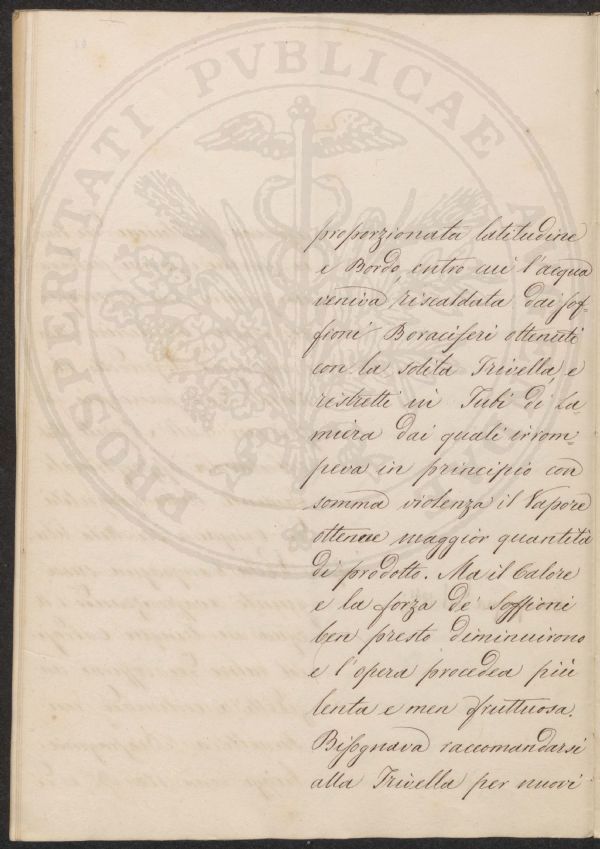 PROSPERITATI PVBLICAE A
proporzionata latitudine
e Bordo, entro cui l'acqua
veniva, riscaldata dai sof-
fioni Boraciferi ottenuti
con la solita Trivella, e
ristretti in Tubi di La
miera dai quali irrom
peva in principio con
somma violenza il Vapore
ottenne maggior quantità
di prodotto. Ma il Calore
e la forza de' Soffioni
ben presto diminuirono
e l'opera procedea più
lenta e men fruttuosa.
Bisognava raccomandarsi
alla Trivella per nuovi